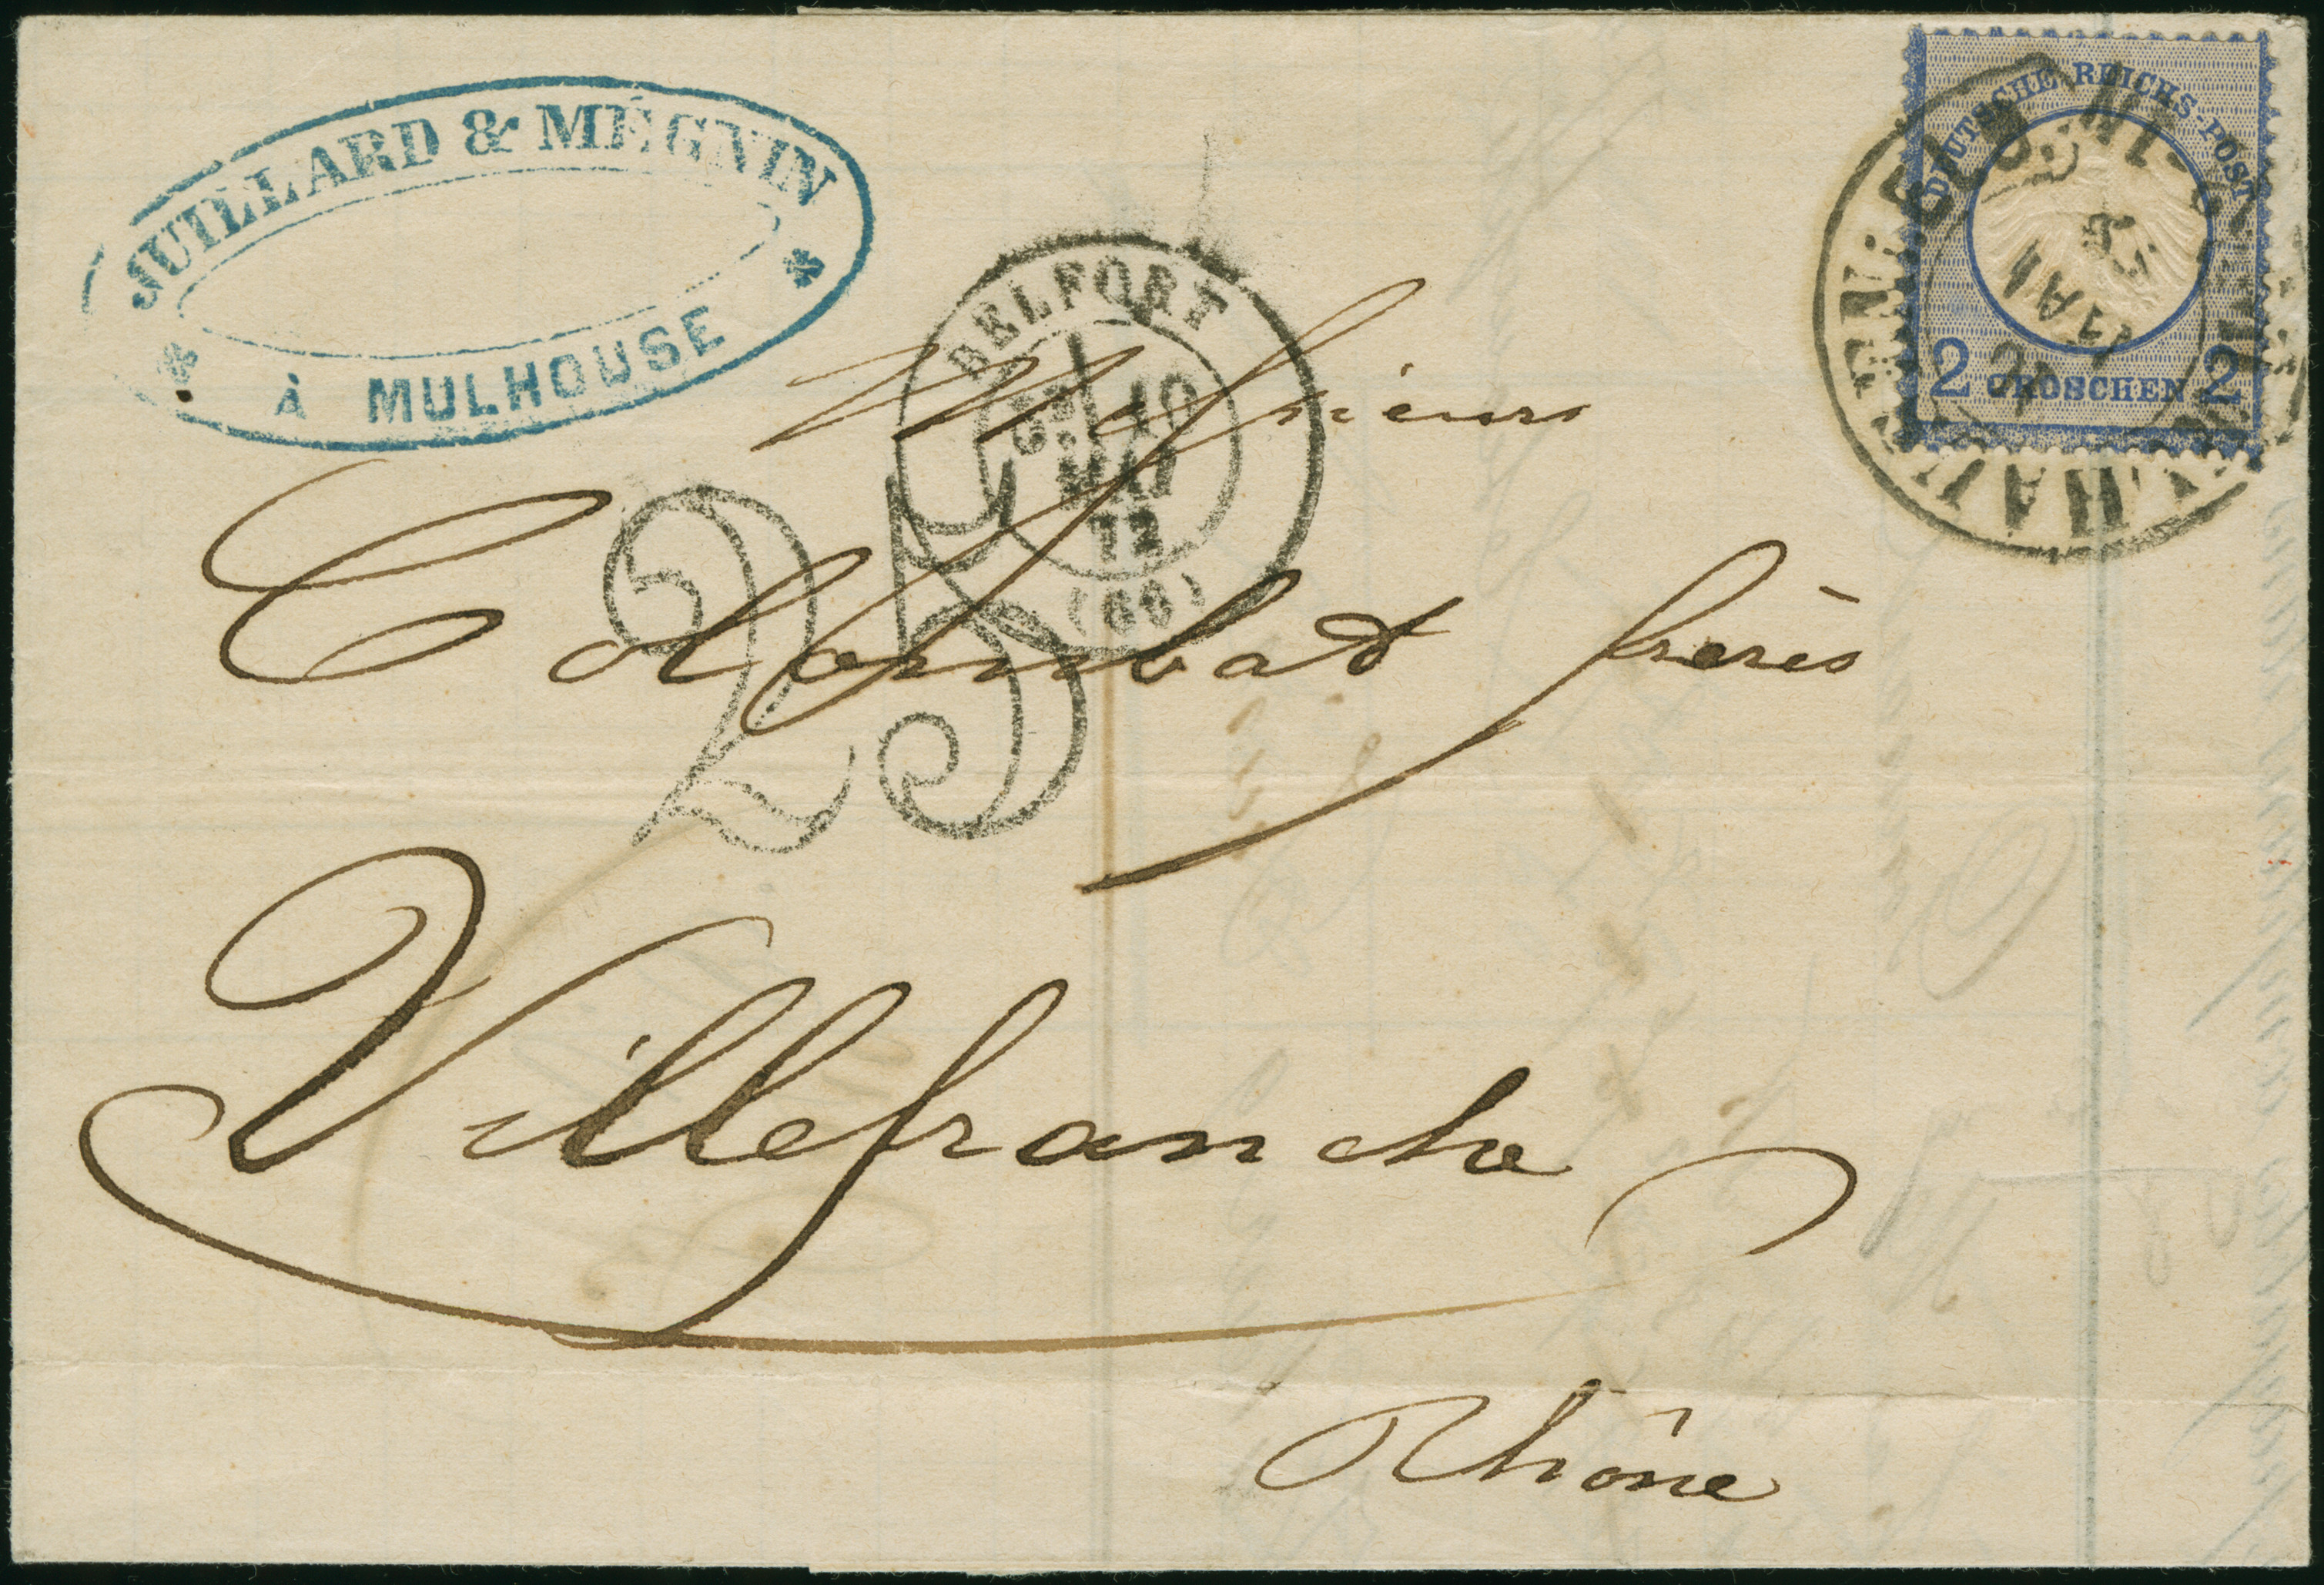 JUILLARD & MÉGNIN
À MULHOUSE
DEUTSCHE REICHS-POST
2 GROSCHEN 2
BELFORT
10
MAI
72
(66)
25
Messieurs
Colombat frères
Villefranche
Rhône